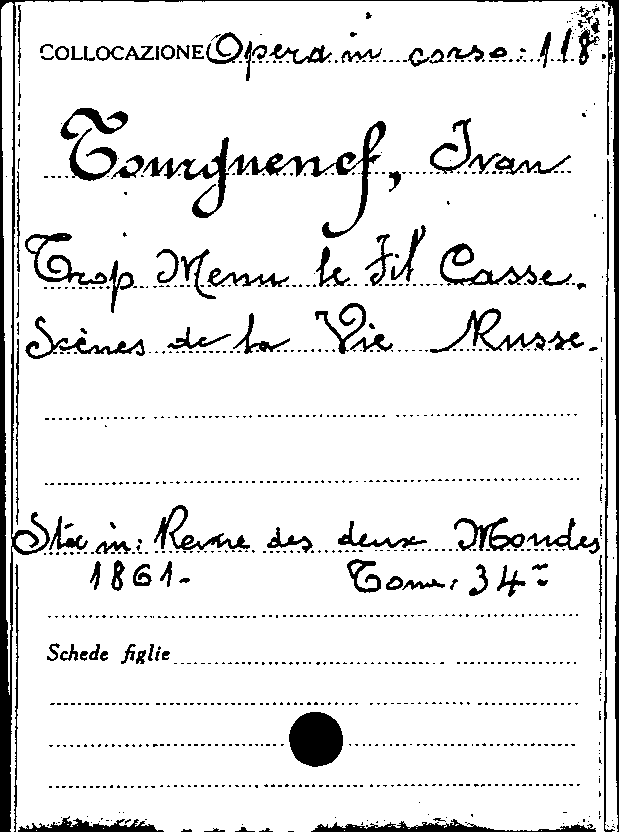 COLLOCAZIONE Opera in corso: 118.
Tourguenef, Ivan
Trop Menu le Fil Casse.
Scènes de la Vie Russe.
Sta in: Revue des deux Mondes
1861. Tome: 34
Schede figlie